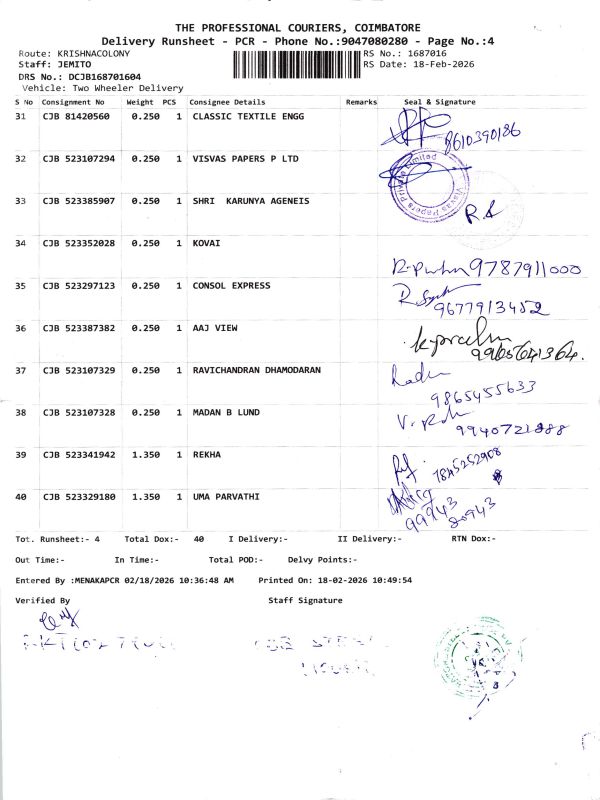 THE PROFESSIONAL COURIERS, COIMBATORE
Delivery Runsheet - PCR - Phone No.:9047080280 - Page No.:4
Route: KRISHNACOLONY RS No.: 1687016
Staff: JEMITO RS Date: 18-Feb-2026
DRS No.: DCJB168701604
Vehicle: Two Wheeler Delivery
S No Consignment No Weight PCS Consignee Details Remarks Seal & Signature
31 CJB 81420560 0.250 1 CLASSIC TEXTILE ENGG
8610390186
32 CJB 523107294 0.250 1 VISVAS PAPERS P LTD
Visvas Papers Private Limited
33 CJB 523385907 0.250 1 SHRI KARUNYA AGENEIS
34 CJB 523352028 0.250 1 KOVAI
9787911000
35 CJB 523297123 0.250 1 CONSOL EXPRESS
9677913452
36 CJB 523387382 0.250 1 AAJ VIEW
37 CJB 523107329 0.250 1 RAVICHANDRAN DHAMODARAN
9865455633
38 CJB 523107328 0.250 1 MADAN B LUND
39 CJB 523341942 1.350 1 REKHA
40 CJB 523329180 1.350 1 UMA PARVATHI
99943
80943
Tot. Runsheet:- 4 Total Dox:- 40 I Delivery:- II Delivery:- RTN Dox:-
Out Time:- In Time:- Total POD:- Delvy Points:-
Entered By :MENAKAPCR 02/18/2026 10:36:48 AM Printed On: 18-02-2026 10:49:54
Verified By Staff Signature